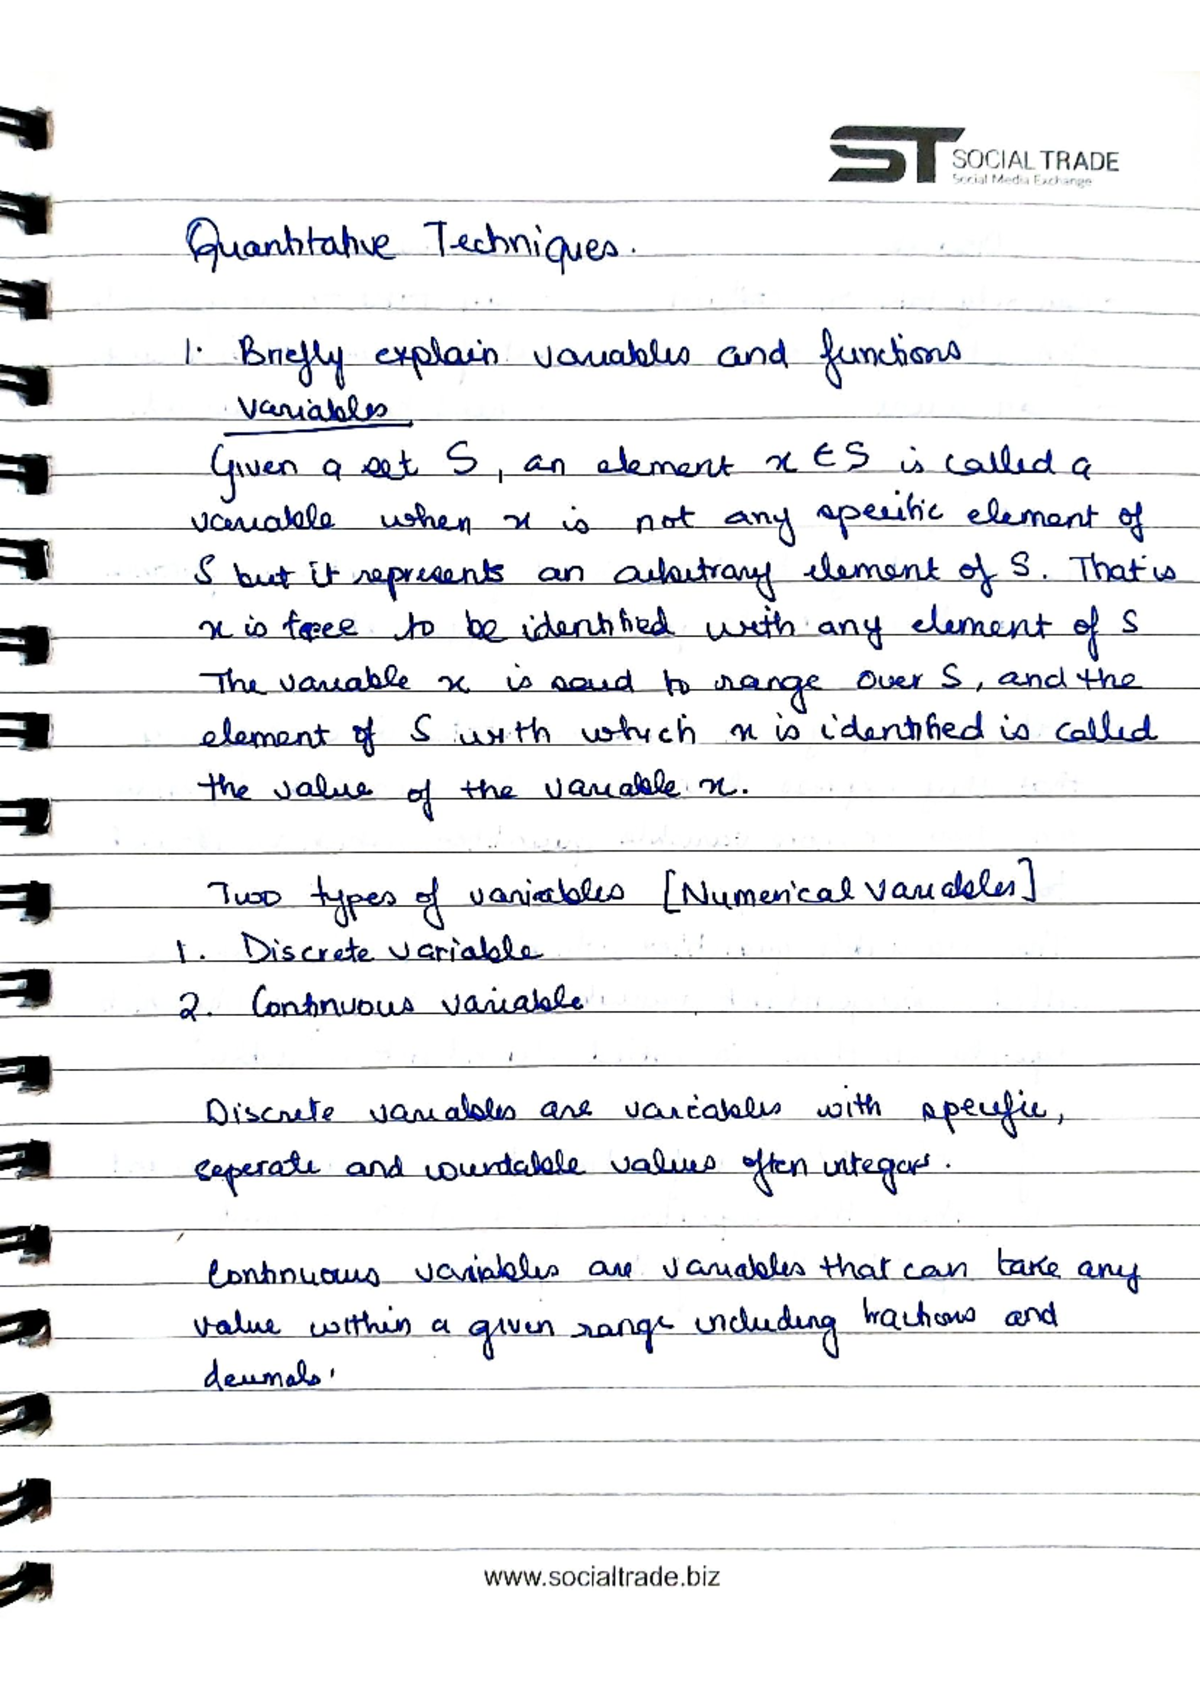 ST SOCIAL TRADE
Social Media Exchange
Quantitative Techniques.
1. Briefly explain variables and functions
Variables
Given a set S, an element x ∈ S is called a
variable when x is not any specific element of
S but it represents an arbitrary element of S. That is
x is free to be identified with any element of S
The variable x is said to range over S, and the
element of S with which x is identified is called
the value of the variable x.
Two types of variables [Numerical Variables]
1. Discrete variable
2. Continuous variable
Discrete variables are variables with specific,
seperate and countable values often integers.
Continuous variables are variables that can take any
value within a given range including fractions and
decimals.
www.socialtrade.biz